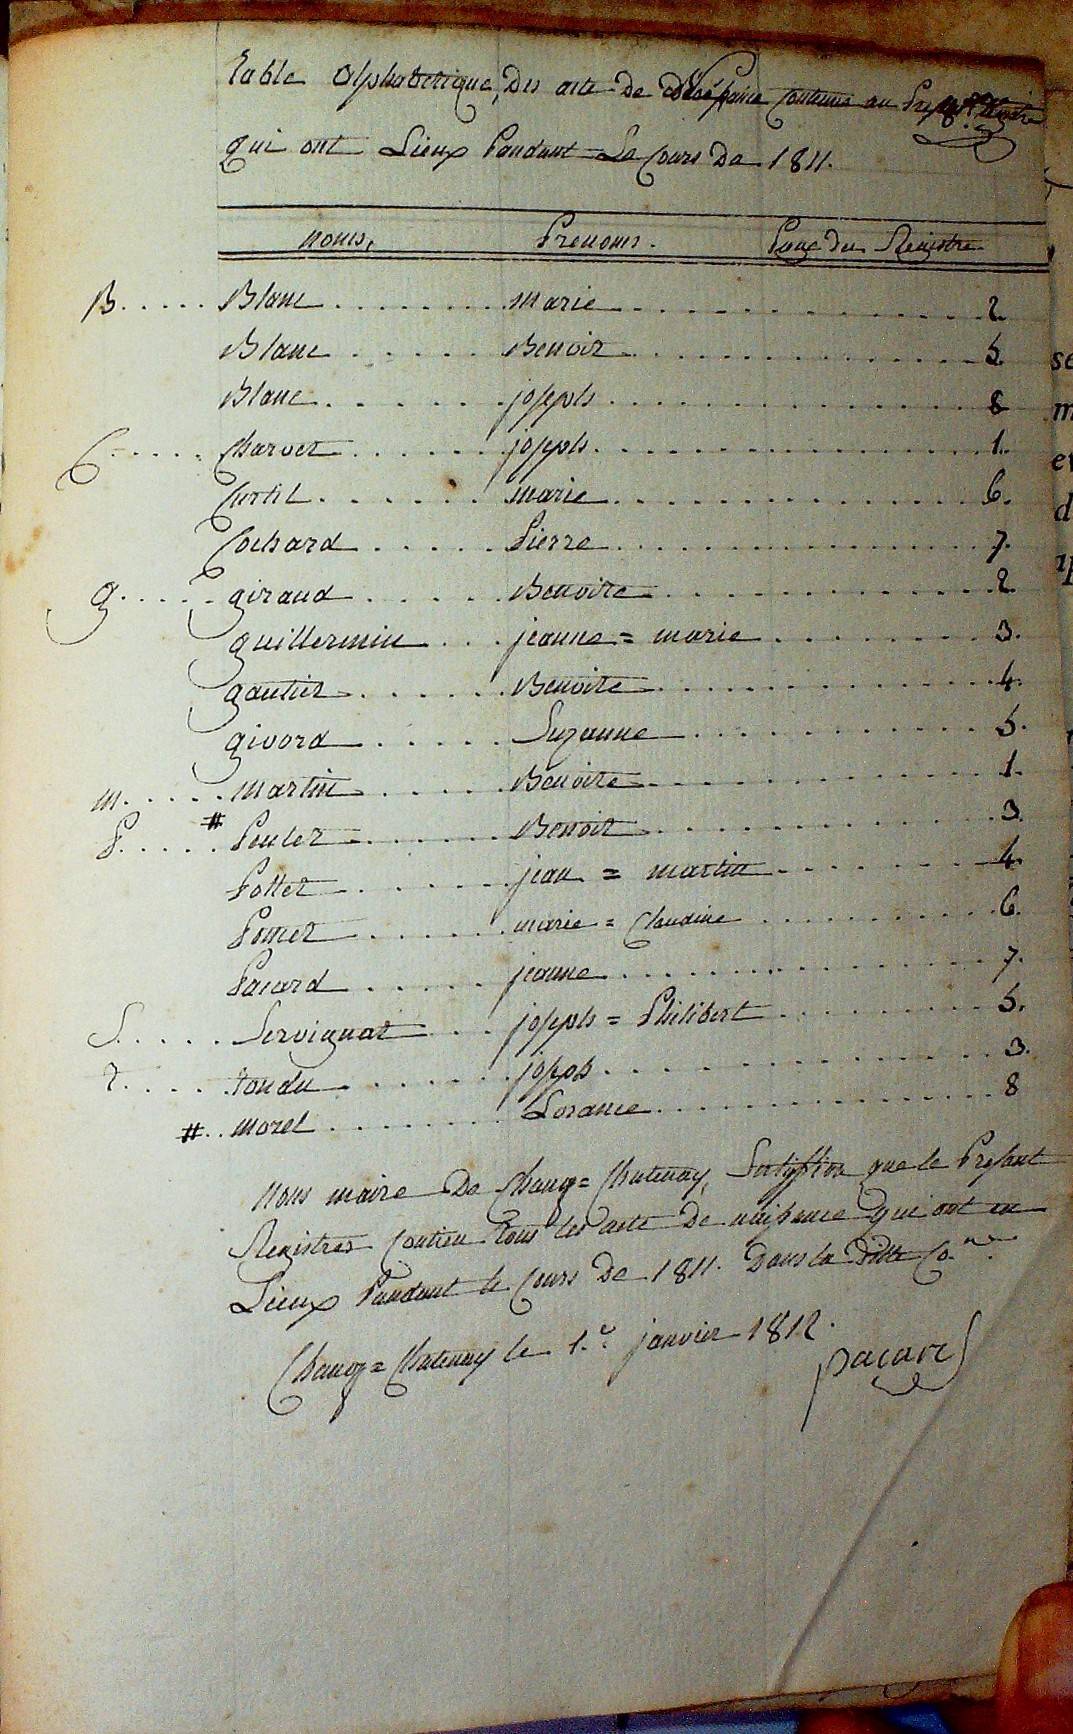 table alphabetique, des acte de contenu au
qui ont Lieux Pandant Le Cours De 1811.
noms, Prenoms. Page du Registre
B..... Blanc marie 2.
Blanc Benoit 5.
Blanc joseph 8
C..... Charvet joseph 1.
Curtil marie 6.
Cochard Pierre 7.
g..... giraud Benoite 2
guillermin jeanne = marie 3.
gautier Benoite 4.
givord Suzanne 5.
m..... martin Benoite 1.
P..... # Peulet Benoit 3.
Pollet jean = martin 4.
Pomet marie = Claudine 6.
Pacard jeanne 7.
S..... Servignat joseph = Philibert 5.
t..... tondu joseph 3.
#.. morel Lorance 8
Nous maire De Changy= Chatenay, que le Present
Registres Contien tous les acte De naissance qui ont eu
Lieux Pandant le Cours De 1811. Dans la Ditte Co.ne
Changy= Chatenay le 1.er janvier 1812.
pacard